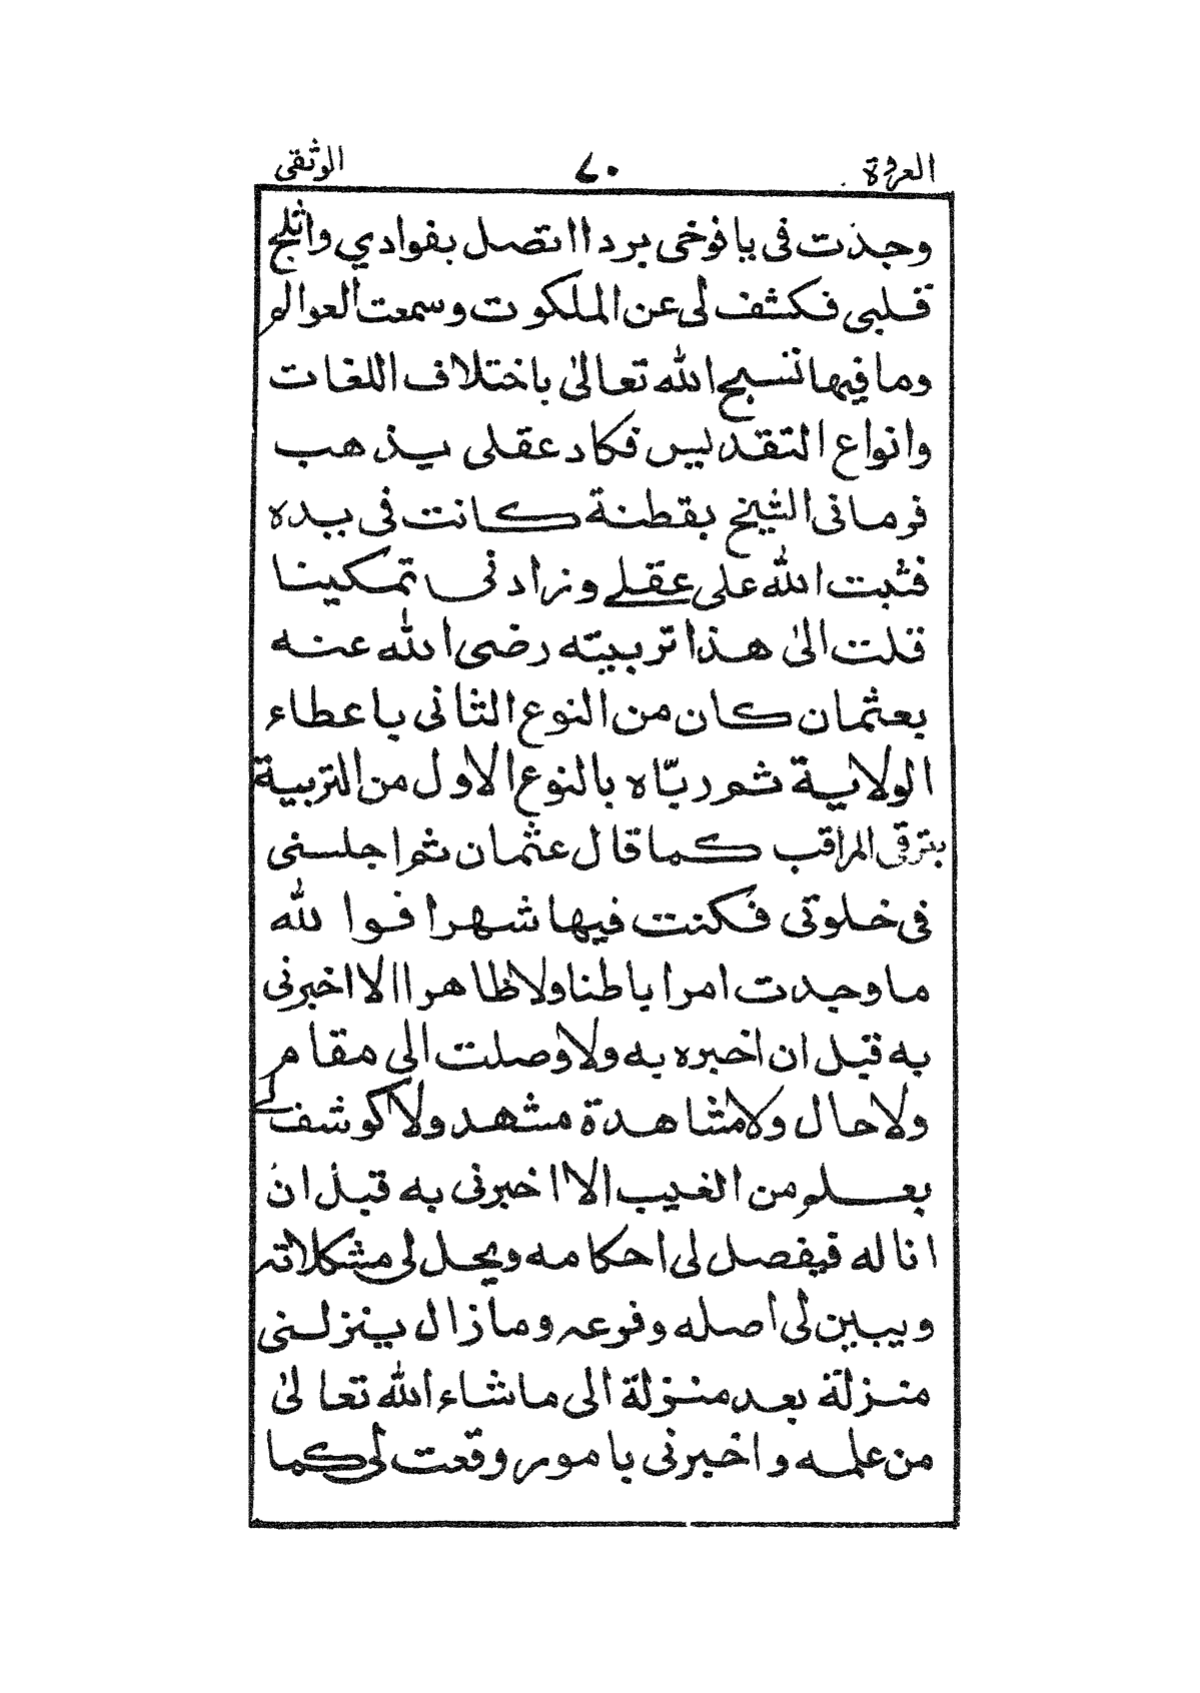 العروة ٧٠ الوثقى
وجدت فى يافوخى بردا اتصل بفوادي واثلج
قلبى فكشف لى عن الملكوت وسمعت العوالم
وما فيها تسبح الله تعالىٰ باختلاف اللغات
وانواع التقديس فكاد عقلى يذهب
فرمانى الشيخ بقطنة كانت فى يده
فثبت الله على عقلے وزادنى تمكينا
قلت الىٰ هذا تربيته رضى الله عنه
بعثمان كان من النوع الثانى باعطاء
الولاية ثم ربّاه بالنوع الاول من التربية
بترقى المراقب كما قال عثمان ثم اجلسنى
فى خلوتى فكنت فيها شهرا فوا لله
ما وجدت امرا باطنا ولا ظاهرا الا اخبرنى
به قبل ان اخبره به ولا وصلت الى مقام
ولا حال ولا مشاهدة مشهد ولا كوشف لے
بعلم من الغيب الا اخبرنى به قبل ان
اناله فيفصل لى احكامه ويحل لى مشكلاته
ويبين لى اصله وفرعه وما زال ينزلنى
منزلة بعد منزلة الى ما شاء الله تعالىٰ
من علمه واخبرنى بامور وقعت لى كما